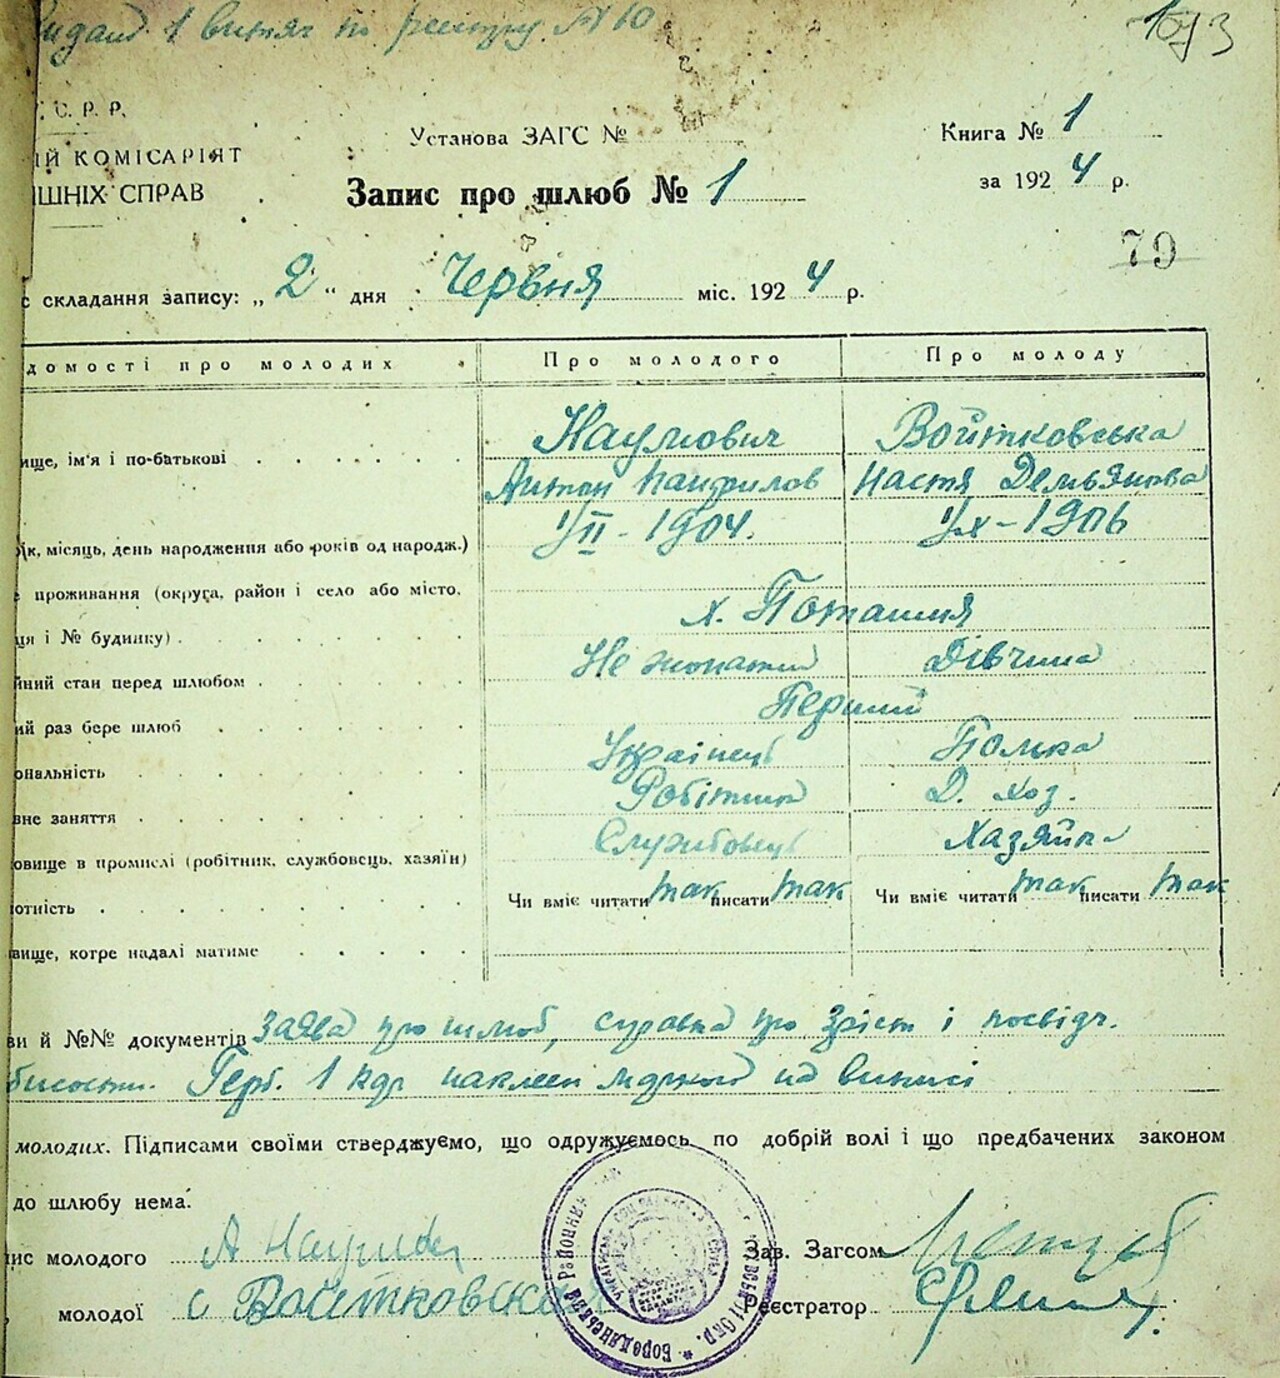 1 витяг по реєстру № 10
С. Р. Р.
ІЙ КОМІСАРІЯТ
ІШНІХ СПРАВ
Установа ЗАГС №
Книга № 1
Запис про шлюб № 1
за 1924 р.
79
с складання запису: „ 2 “ дня Червня міс. 1924 р.
домості про молодих
Про молодого
Про молоду
Наумович
Войтковська
ище, ім'я і по-батькові
Антон Панфилов
Настя Демьянова
1/II - 1904.
1/X - 1906
к, місяць, день народження або років од народж.)
проживання (округа, район і село або місто,
х. Поташня
ця і № будинку)
Не жонатий
Дівчина
йний стан перед шлюбом
Перший
ий раз бере шлюб
Українець
Полька
ональність
Робітник
Д. хоз.
вне заняття
Службовець
Хазяйка
овище в промислі (робітник, службовець, хазяїн)
Чи вміє читати так писати так
Чи вміє читати так писати так
отність
вище, котре надалі матиме
ви й №№ документів Заява про шлюб, справка про зріст і посвідч.
Герб. 1 крб наклеен на виписі
молодих. Підписами своїми стверджуємо, що одружуємось по добрій волі і що предбачених законом
до шлюбу нема.
ис молодого А Наумович
Зав. Загсом
молодої с Войтковская
Реєстратор
Бородянська Районна
Окр.